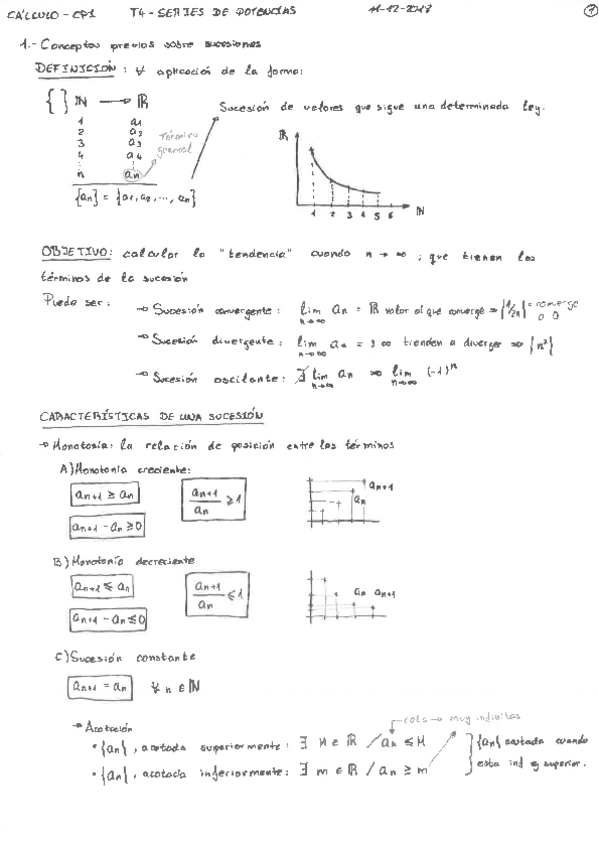 CÁLCULO - CP1 T4 - SERIES DE POTENCIAS 11-12-2018 1
1.- Conceptos previos sobre sucesiones
DEFINICIÓN: ∀ aplicación de la forma:
{ } ℕ → ℝ
Sucesión de valores que sigue una determinada ley.
1 a1
2 a2
3 a3
4 a4
⋮ ⋮
n an
Término general
{an} = {a1, a2, ..., an}
ℝ
1 2 3 4 5 6 ℕ
OBJETIVO: calcular la "tendencia" cuando n → ∞ ; que tienen los
términos de la sucesión
Puede ser: → Sucesión convergente: lim n→∞ an = ℝ valor al que converge ⇒ {1/2n} = converge a 0
→ Sucesión divergente: lim n→∞ an = ∞ tienden a diverger ⇒ {n²}
→ Sucesión oscilante: ∄ lim n→∞ an ⇒ lim n→∞ (-1)^n
CARACTERÍSTICAS DE UNA SUCESIÓN
→ Monotonía: la relación de posición entre los términos
A) Monotonía creciente:
an+1 ≥ an
an+1 / an ≥ 1
an+1 - an ≥ 0
an+1
an
B) Monotonía decreciente
an+1 ≤ an
an+1 / an ≤ 1
an+1 - an ≤ 0
an an+1
C) Sucesión constante
an+1 = an ∀ n ∈ ℕ
→ Acotación
cota → muy infinitas
• {an}, acotada superiormente: ∃ M ∈ ℝ / an ≤ M
• {an}, acotada inferiormente: ∃ m ∈ ℝ / an ≥ m
{an} acotada cuando
esta inf y superior.